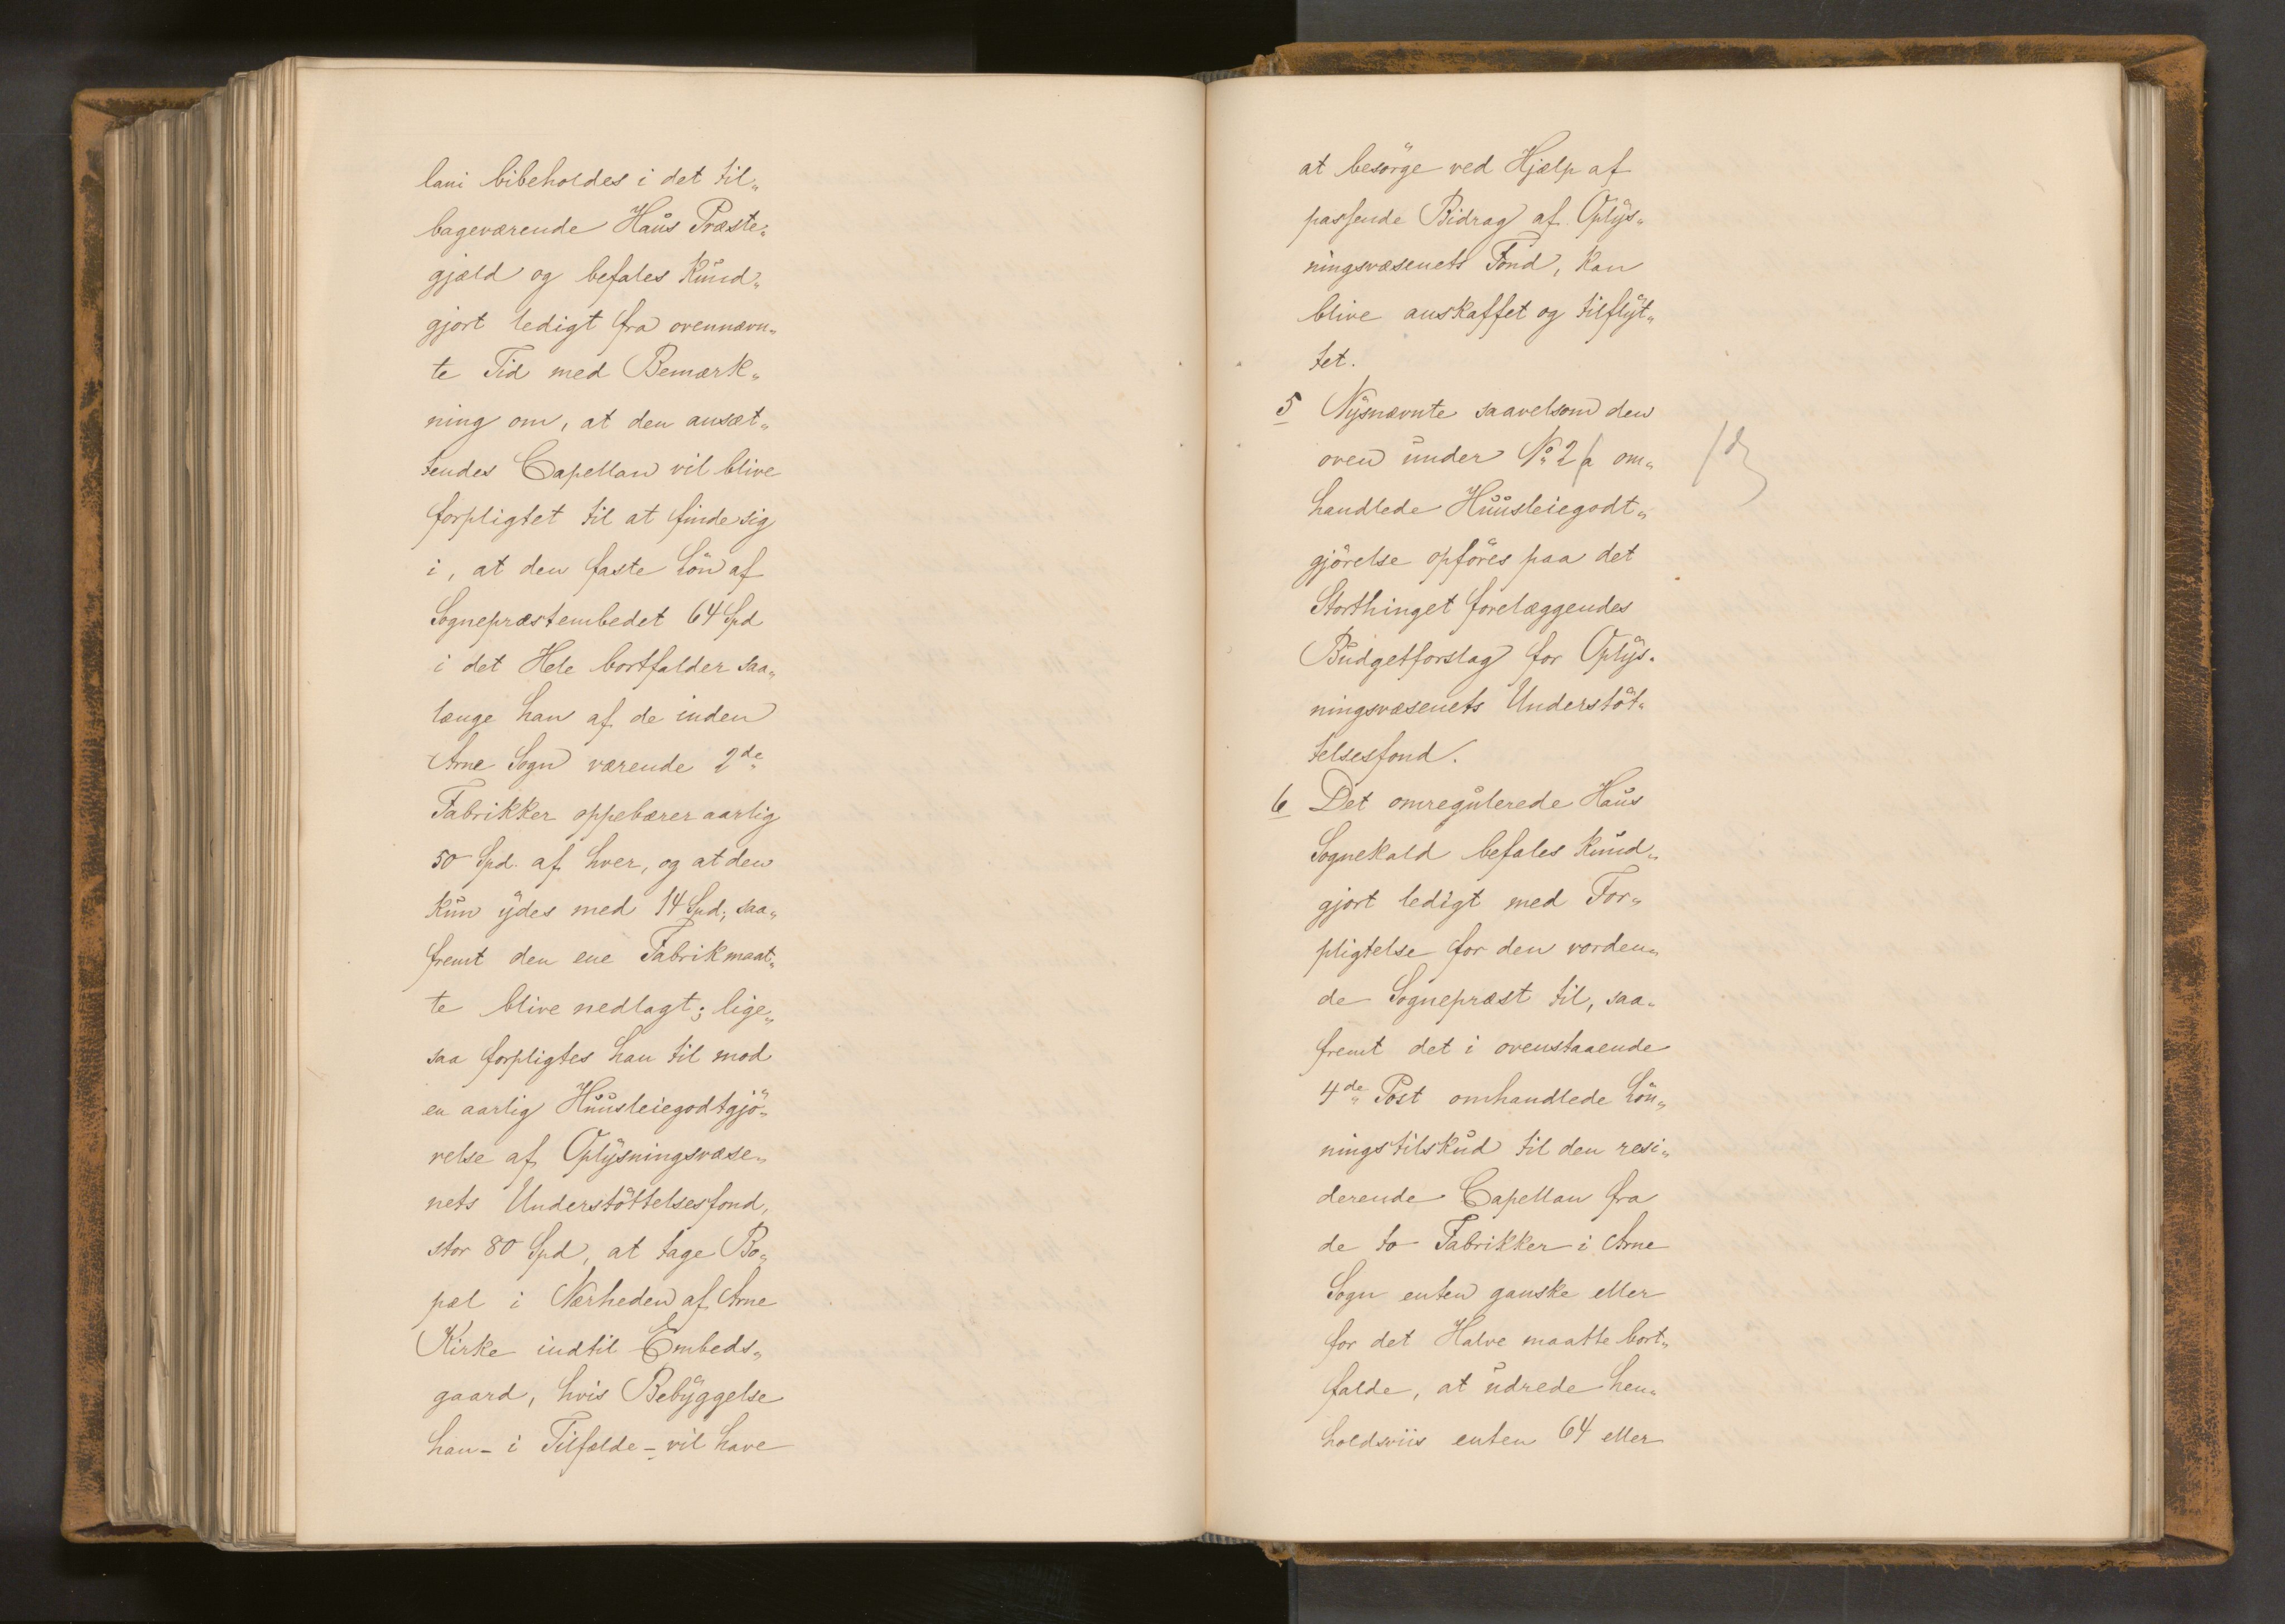 lani bibeholdes i det til„
bageværende Haus Præste„
gjæld og befales Kund„
gjort ledigt fra ovennævn„
te Tid med Bemærk„
ning om, at den ansæt„
tendes Capellan vil blive
forpligtet til at finde sig
i, at den faste Lön af
Sognepræstembedet 64 Spd
i det Hele bortfalder saa„
længe han af de inden
Arne Sogn værende 2de
Fabrikker oppebærer aarlig
50 Spd. af hver, og at den
Kun ydes med 14 Spd, saa„
fremt den ene Fabrik maat„
te blive nedlagt; lige„
saa forpligtes han til mod
en aarlig Huusleiegodtgjö„
relse af Oplysningsvæse„
nets Understöttelsesfond,
stor 80 Spd, at tage Bo„
pæl i Nærheden af Arne
Kirke indtil Embeds„
gaard, hvis Bebyggelse
han - i Tilfælde - vil have
at besörge ved Hjælp af
passende Bidrag af Oplys„
ningsvæsenets Fond, Kan
blive anskaffet og tilflyt„
tet.
5 Nysnævnte saavelsom den
oven under No 2 a om„
handlede Huusleiegodt„
gjörelse opföres paa det
Storthinget forelæggendes
Budgetforslag for Oplys„
ningsvæsenets Understöt„
telsesfond.
6 Det omregulerede Haus
Sognekald befales Kund„
gjort ledigt med For„
pligtelse for den vorden„
de Sognepræst til, saa„
fremt det i ovenstaaende
4de Post omhandlede Lön„
ningstilskud til den resi„
derende Capellan fra
de to Fabrikker i Arne
Sogn enten ganske eller
for det Halve maatte bort„
falde, at udrede hen„
holdsviis enten 64 eller